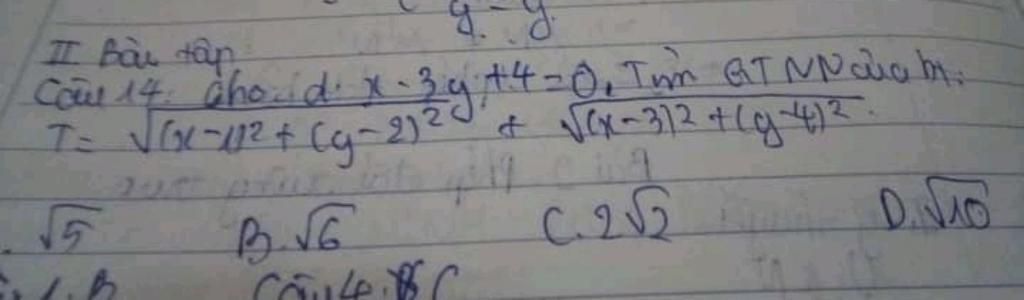 y = y.
II Bài tập
Câu 14. Cho d: x - 3y + 4 = 0. Tìm GTNN của b.
T = √(x-1)² + (y-2)² + √(x-3)² + (y-4)².
√5 B. √6 C. 2√2 D. √10
1. B Câu 4. C